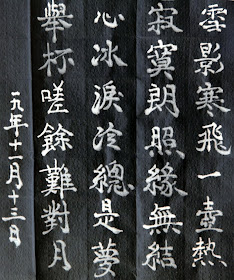 雪影寒飛一壺熱
寂寞朗照緣無結
心冰淚冷總是夢
舉杯嗟餘難對月
一九年十一月十三日